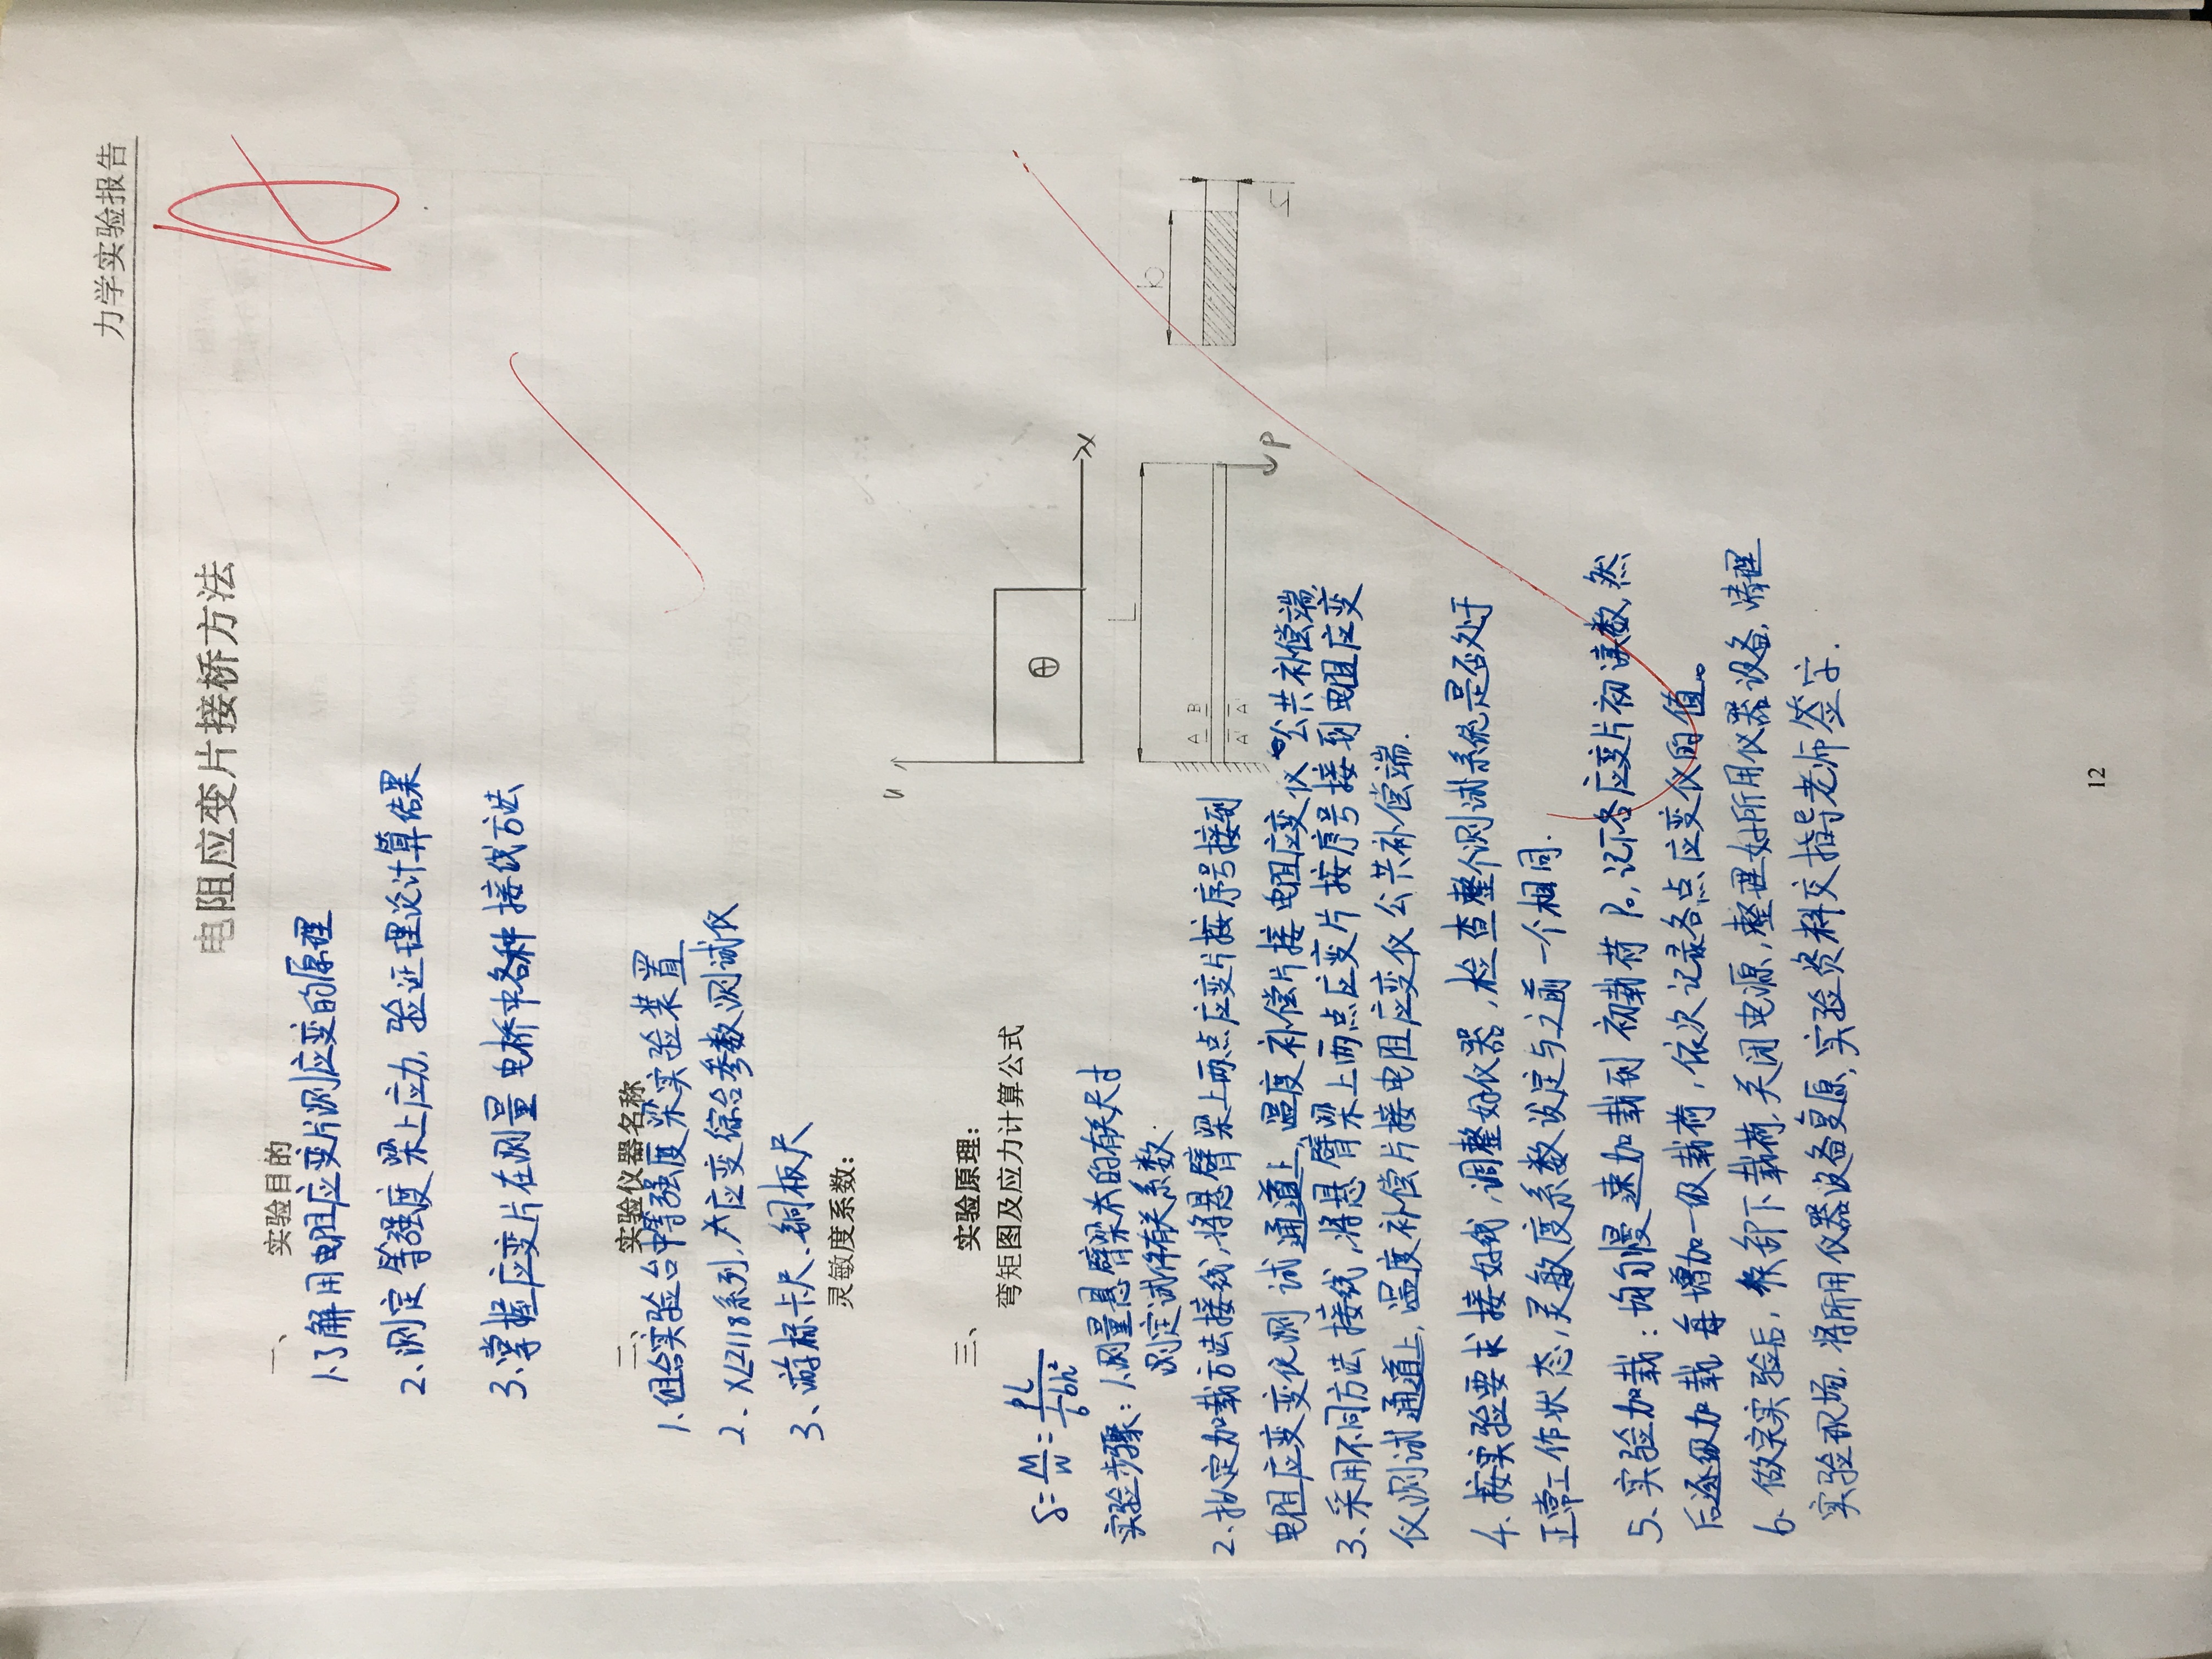 力学实验报告
A
电阻应变片接桥方法
一、 实验目的
1.了解用电阻应变片测应变的原理
2、测定等强度梁上应力,验证理论计算结果
3、掌握应变片在测量电桥中各种接线方法
二、 实验仪器名称
1、组合实验台中等强度梁实验装置
2、XL2118系列,力应变综合参数测试仪
3、游标卡尺、钢板尺
灵敏度系数:
三、 实验原理:
弯矩图及应力计算公式
δ=M/W=PL/(1/6 bh²)
u
⊕
x
L
A B
A' A'
P
b
h
实验步骤:1、测量悬臂梁的有关尺寸
测定试件有关系数.
2、拟定加载方法接线,将悬臂梁上两点应变片按序号接到
电阻应变变仪测试通道上,温度补偿片接电阻应变仪公共补偿端,
3、采用不同方法接线,将悬臂梁上两点应变片按序号接到电阻应变
仪测试通道上,温度补偿片接电阻应变仪公共补偿端.
4、按实验要求接好线,调整好仪器,检查整个测试系统是否处于
正常工作状态,灵敏度系数设定与之前一个相同.
5、实验加载:均匀慢速加载到初载荷P₀,记下各应变片初读数,然
后逐级加载,每增加一级载荷,依次记录各点应变仪的值。
6、做完实验后,卸下载荷,关闭电源,整理好所用仪器设备,清理
实验现场,将所用仪器设备复原,实验资料交指导老师签字.
12